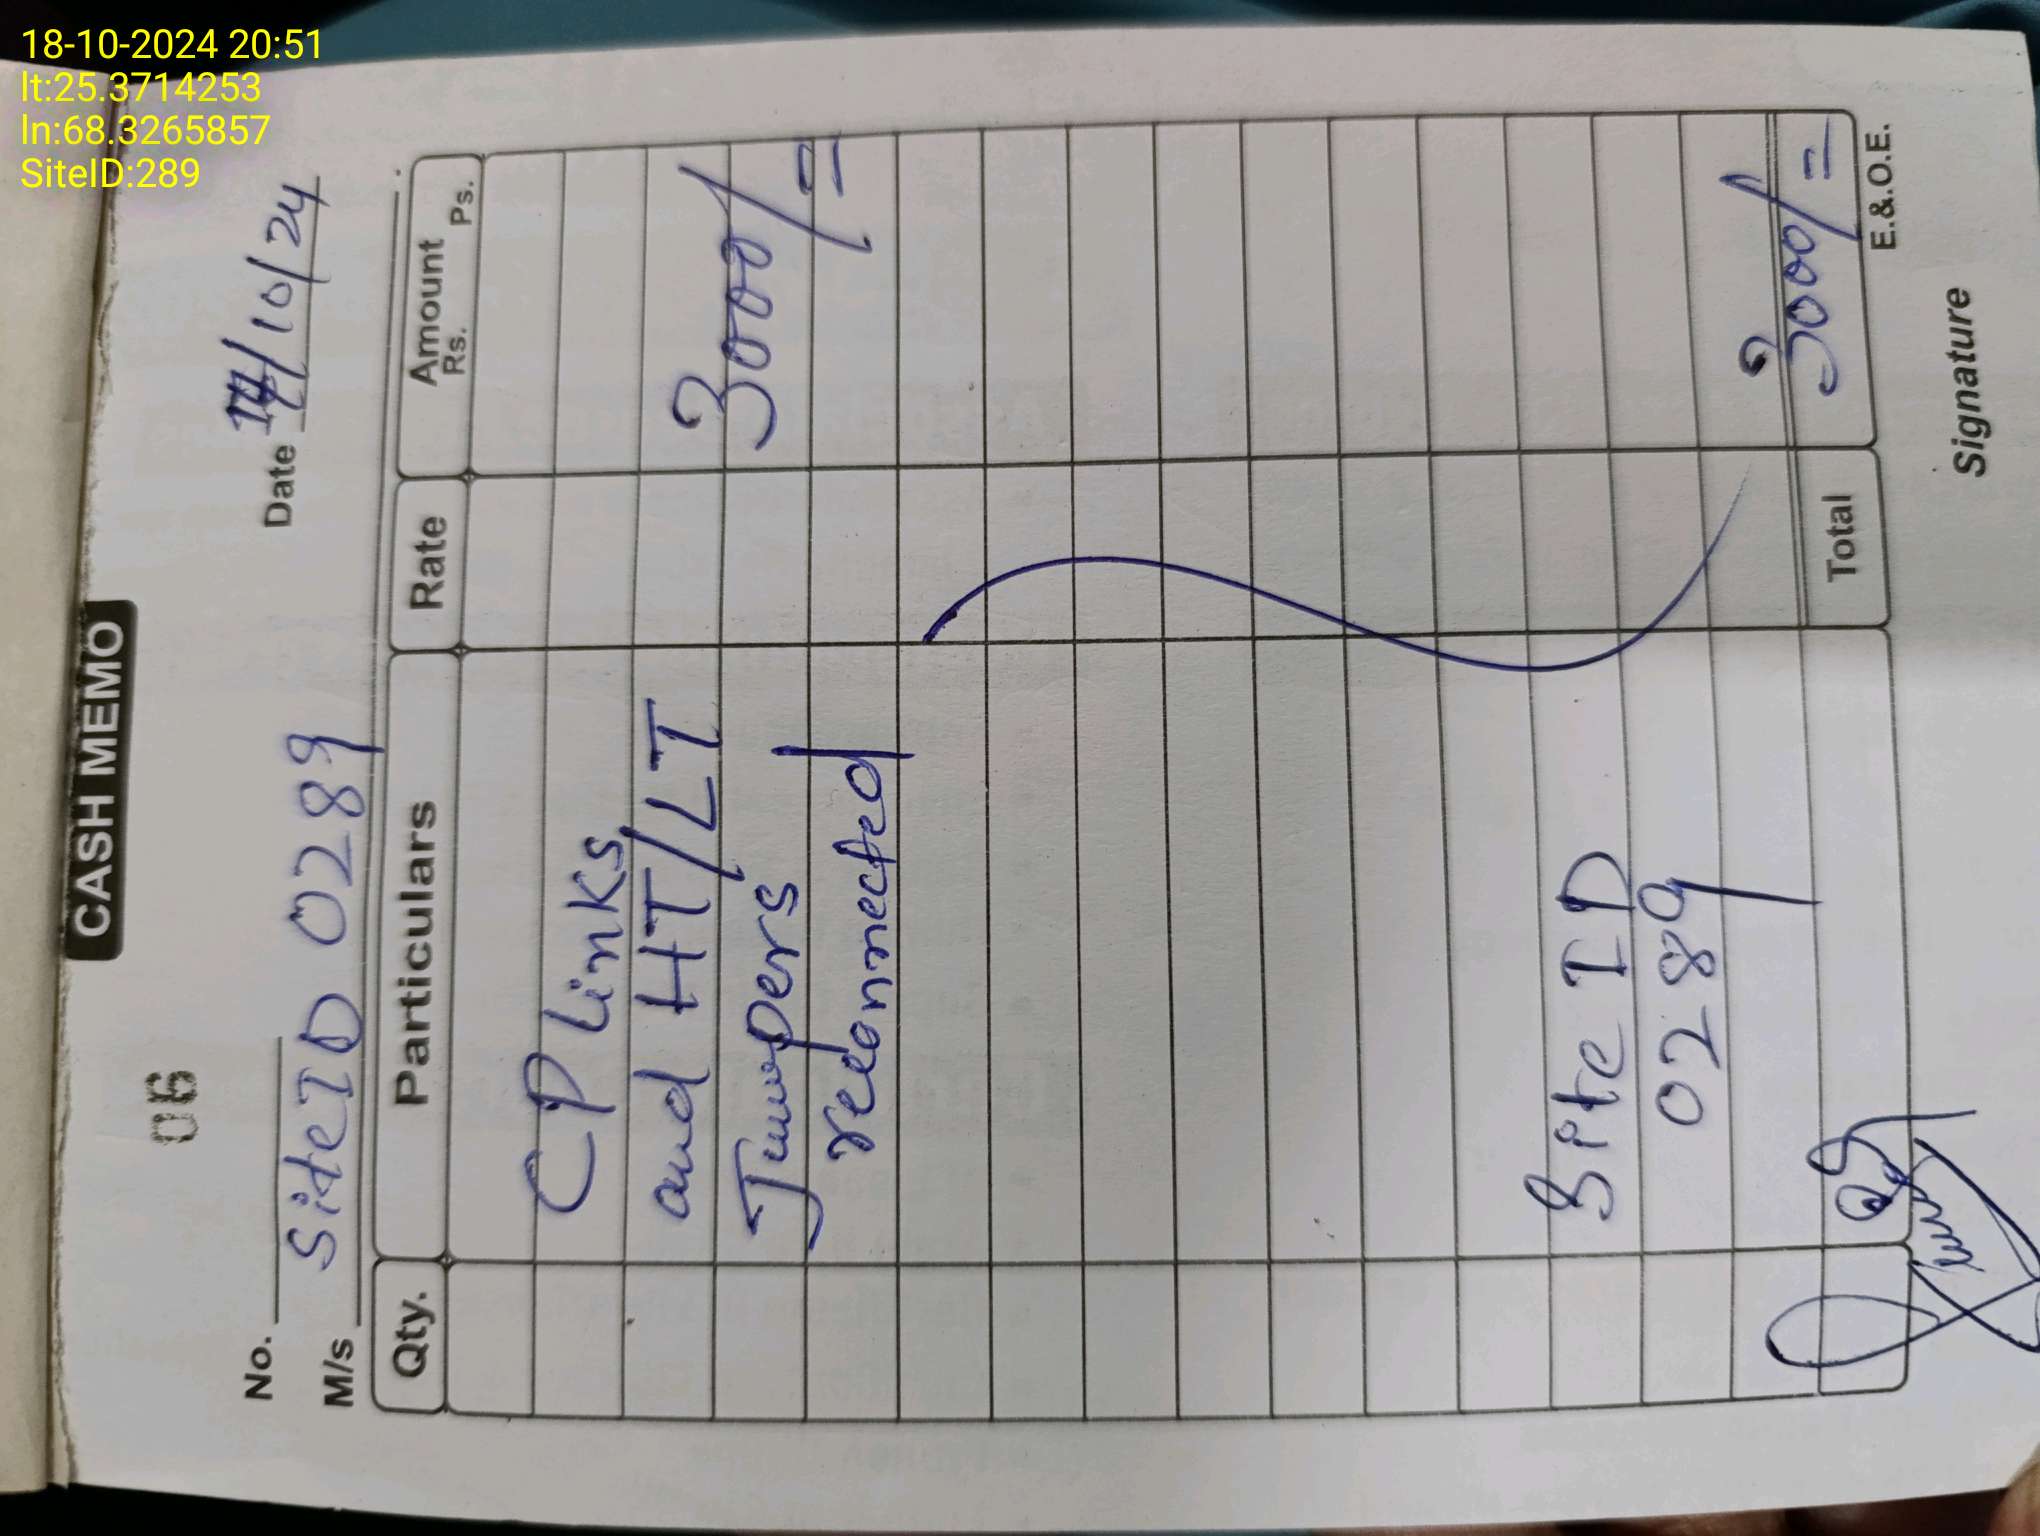 18-10-2024 20:51
lt:25.3714253
ln:68.3265857
SiteID:289
CASH MEMO
06
No. Date /10/24
M/s Site ID 0289
Qty. Particulars Rate Amount
Rs. Ps.
CP links
and HT/LT 3000/=
Jumpers
reconnected
Site ID
0289
Total 3000/=
E.&.O.E.
Signature